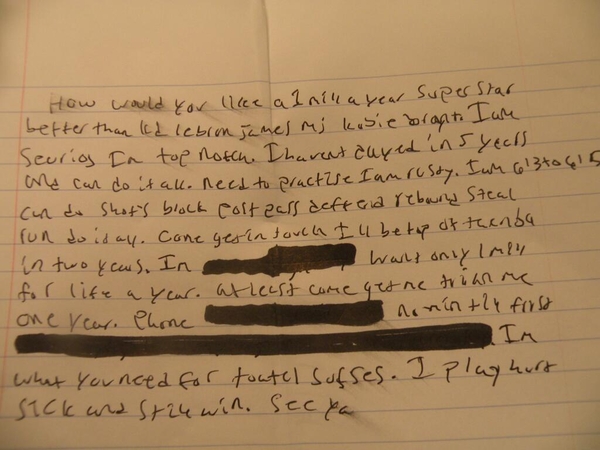 How would you like a 1 mill a year Super Star
better than kd lebron james mj kobie I am
Seurios Im top notch. I havent played in 5 years
and can do it all. need to practise I am rusty. I am 6'3 to 6'5
can do shots block post pass deffend rebound Steal
run do it all. Come get in touch I ll be top of the nba
in two years. Im want only 1 mill
for life a year. at least come get me me
one year. Phone first
Im
what you need for toatel sufses. I play hurt
SICK and still win. See ya